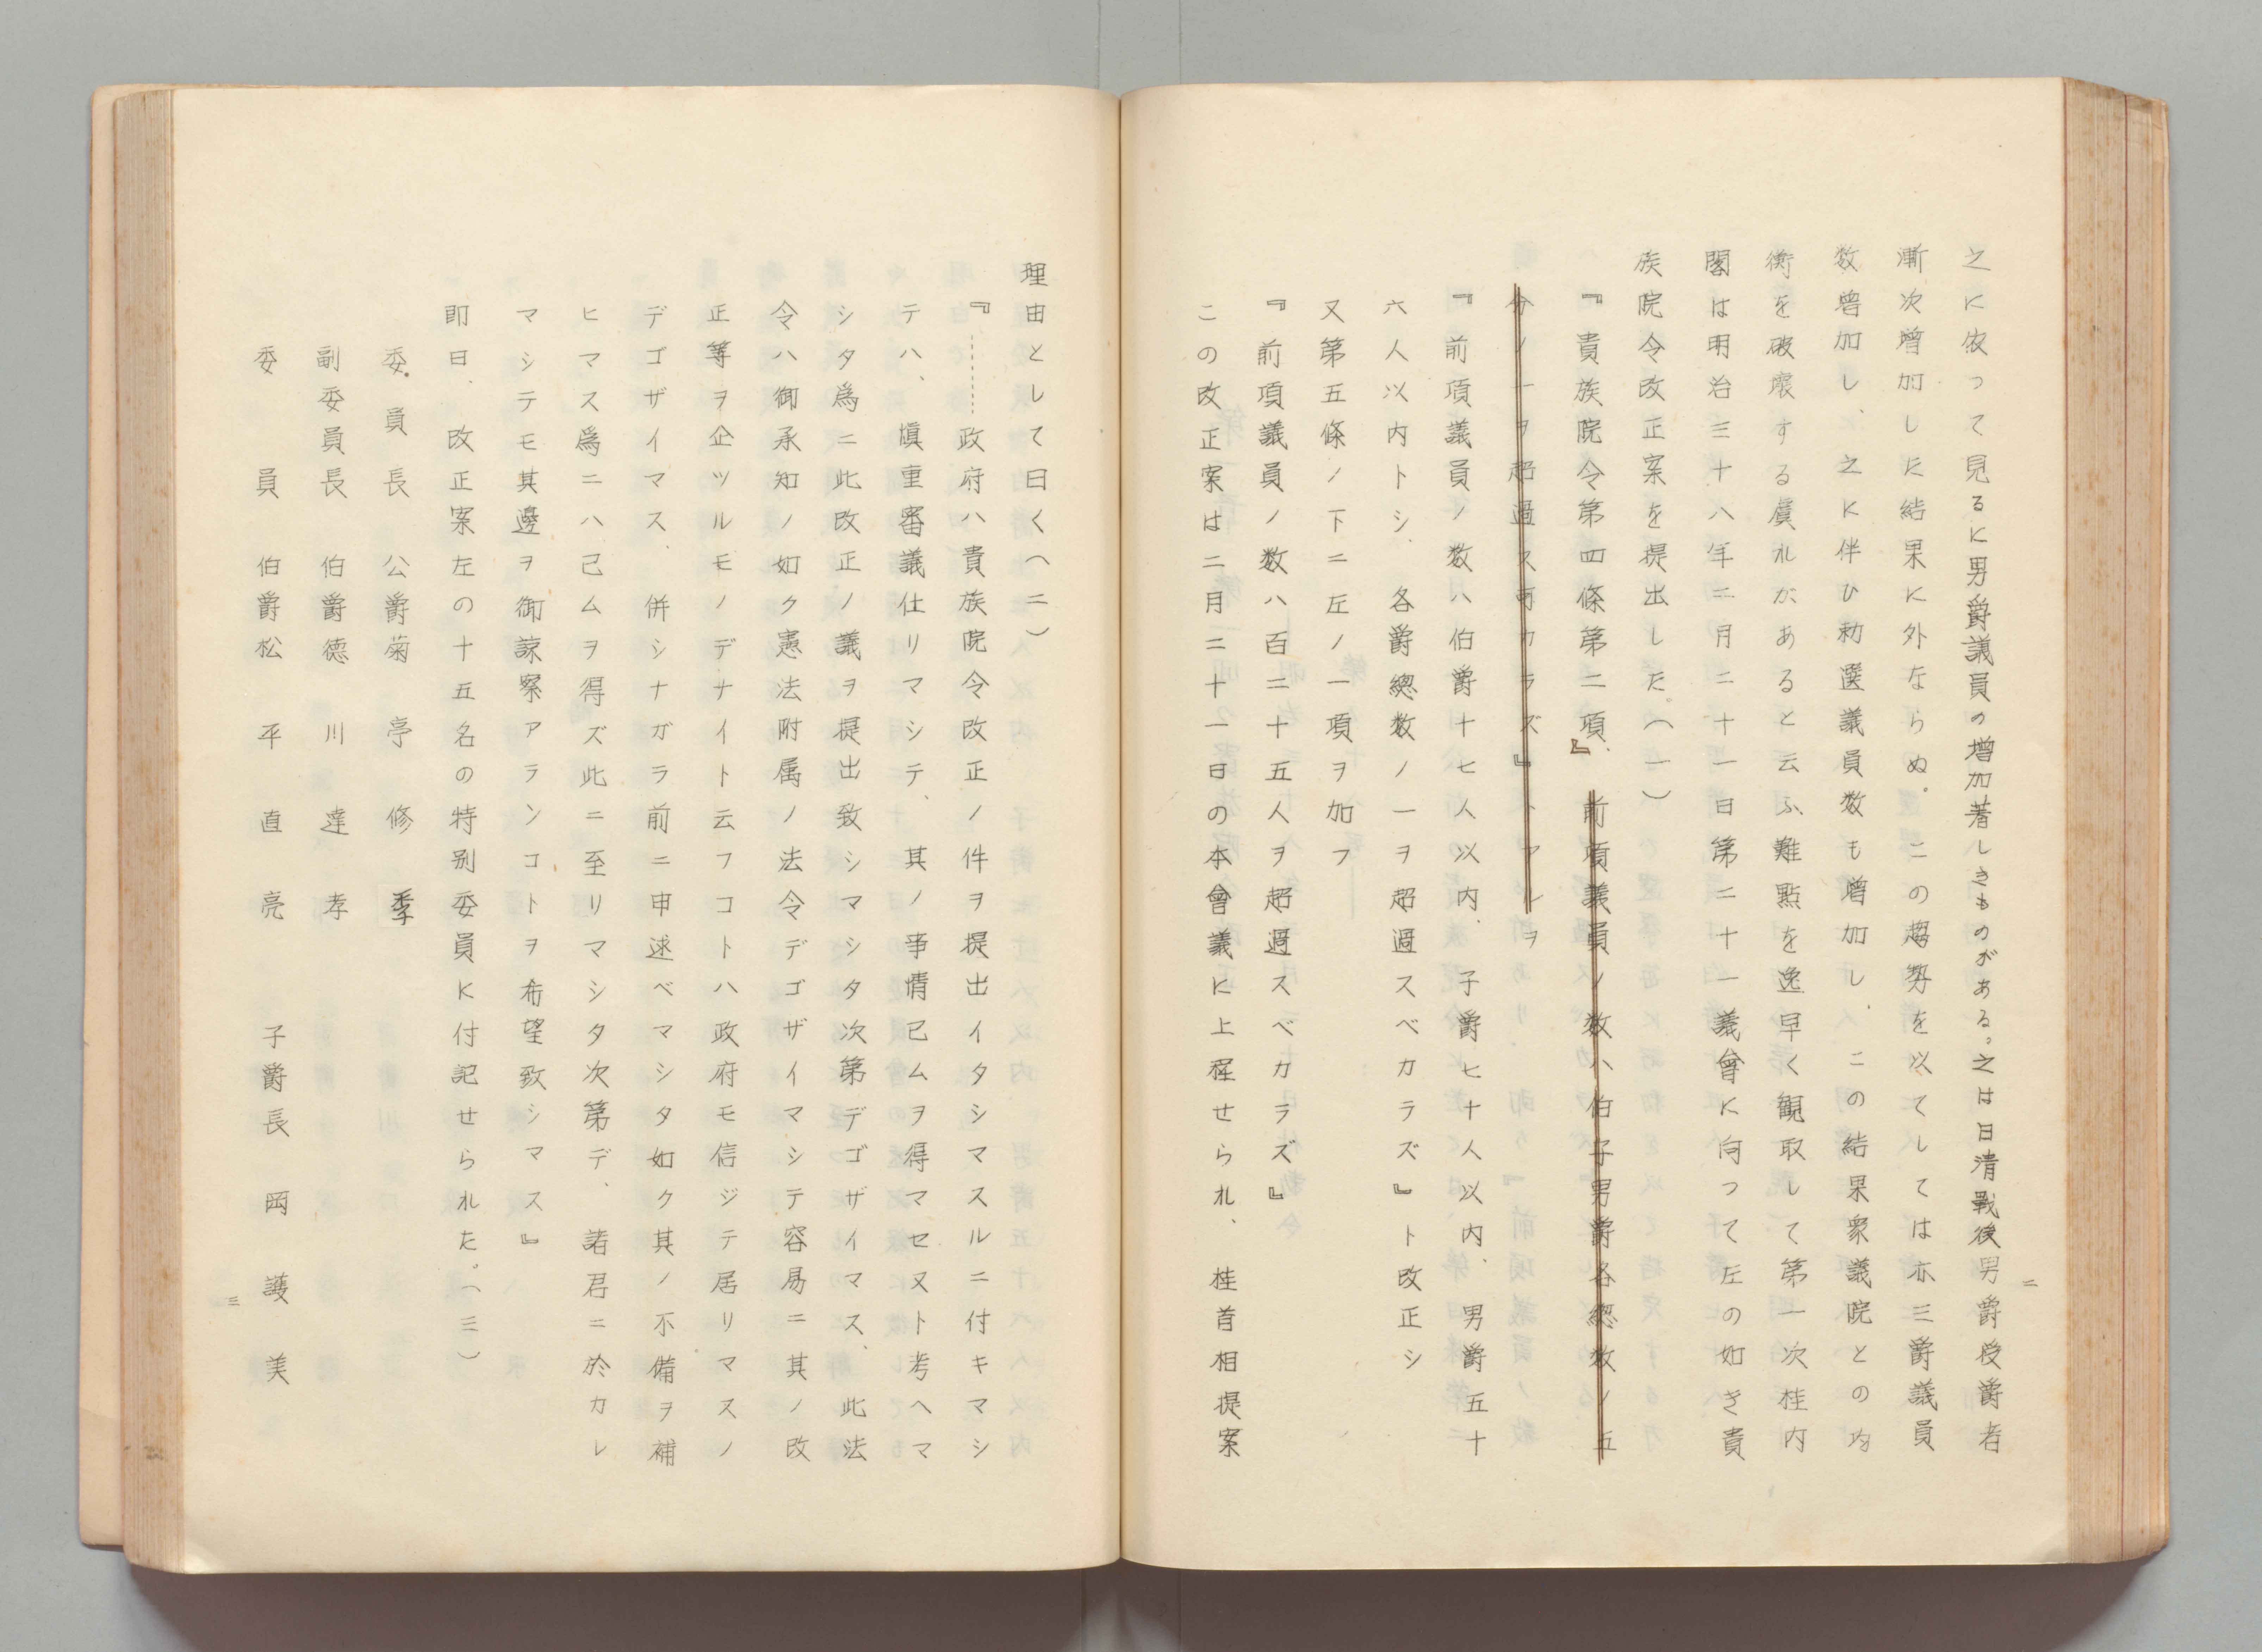 二
之に依って見るに男爵議員の増加著しきものがある。之は日清戰後男爵授爵者
漸次増加した結果に外ならぬ。この趨勢を以てしては亦三爵議員
数増加し、之に伴ひ勅選議員数も増加し、この結果衆議院との均
衡を破壊する虞れがあると云ふ難點を逸早く観取して第一次桂内
閣は明治三十八年二月二十一日第二十一議會に向って左の如き貴
族院令改正案を提出した。（一）
『貴族院令第四條第二項』前項議員ノ数ハ伯子男爵各總数ノ五
分ノ一ヲ超過ス可カラズ』トアルヲ
『前項議員ノ数ハ伯爵十七人以内、子爵七十人以内、男爵五十
六人以内トシ、各爵總数ノ一ヲ超過スベカラズ』ト改正シ
又第五條ノ下ニ左ノ一項ヲ加フ
『前項議員ノ数ハ百二十五人ヲ超過スベカラズ』
この改正案は二月二十一日の本會議に上程せられ、桂首相提案
理由として曰く（二）
『………政府ハ貴族院令改正ノ件ヲ提出イタシマスルニ付キマシ
テハ、愼重審議仕リマシテ、其ノ事情已ムヲ得マセヌト考ヘマ
シタ爲ニ此改正ノ議ヲ提出致シマシタ次第デゴザイマス、此法
令ハ御承知ノ如ク憲法附属ノ法令デゴザイマシテ容易ニ其ノ改
正等ヲ企ツルモノデナイト云フコトハ政府モ信ジテ居リマスノ
デゴザイマス、併シナガラ前ニ申述ベマシタ如ク其ノ不備ヲ補
ヒマス爲ニハ己ムヲ得ズ此ニ至リマシタ次第デ、諸君ニ於カレ
マシテモ其邊ヲ御諒察アランコトヲ希望致シマス』
即日、改正案左の十五名の特別委員に付記せられた。（三）
委員長　公爵菊亭修季
副委員長　伯爵徳川達孝
委員　伯爵松平直亮　子爵長岡護美
三